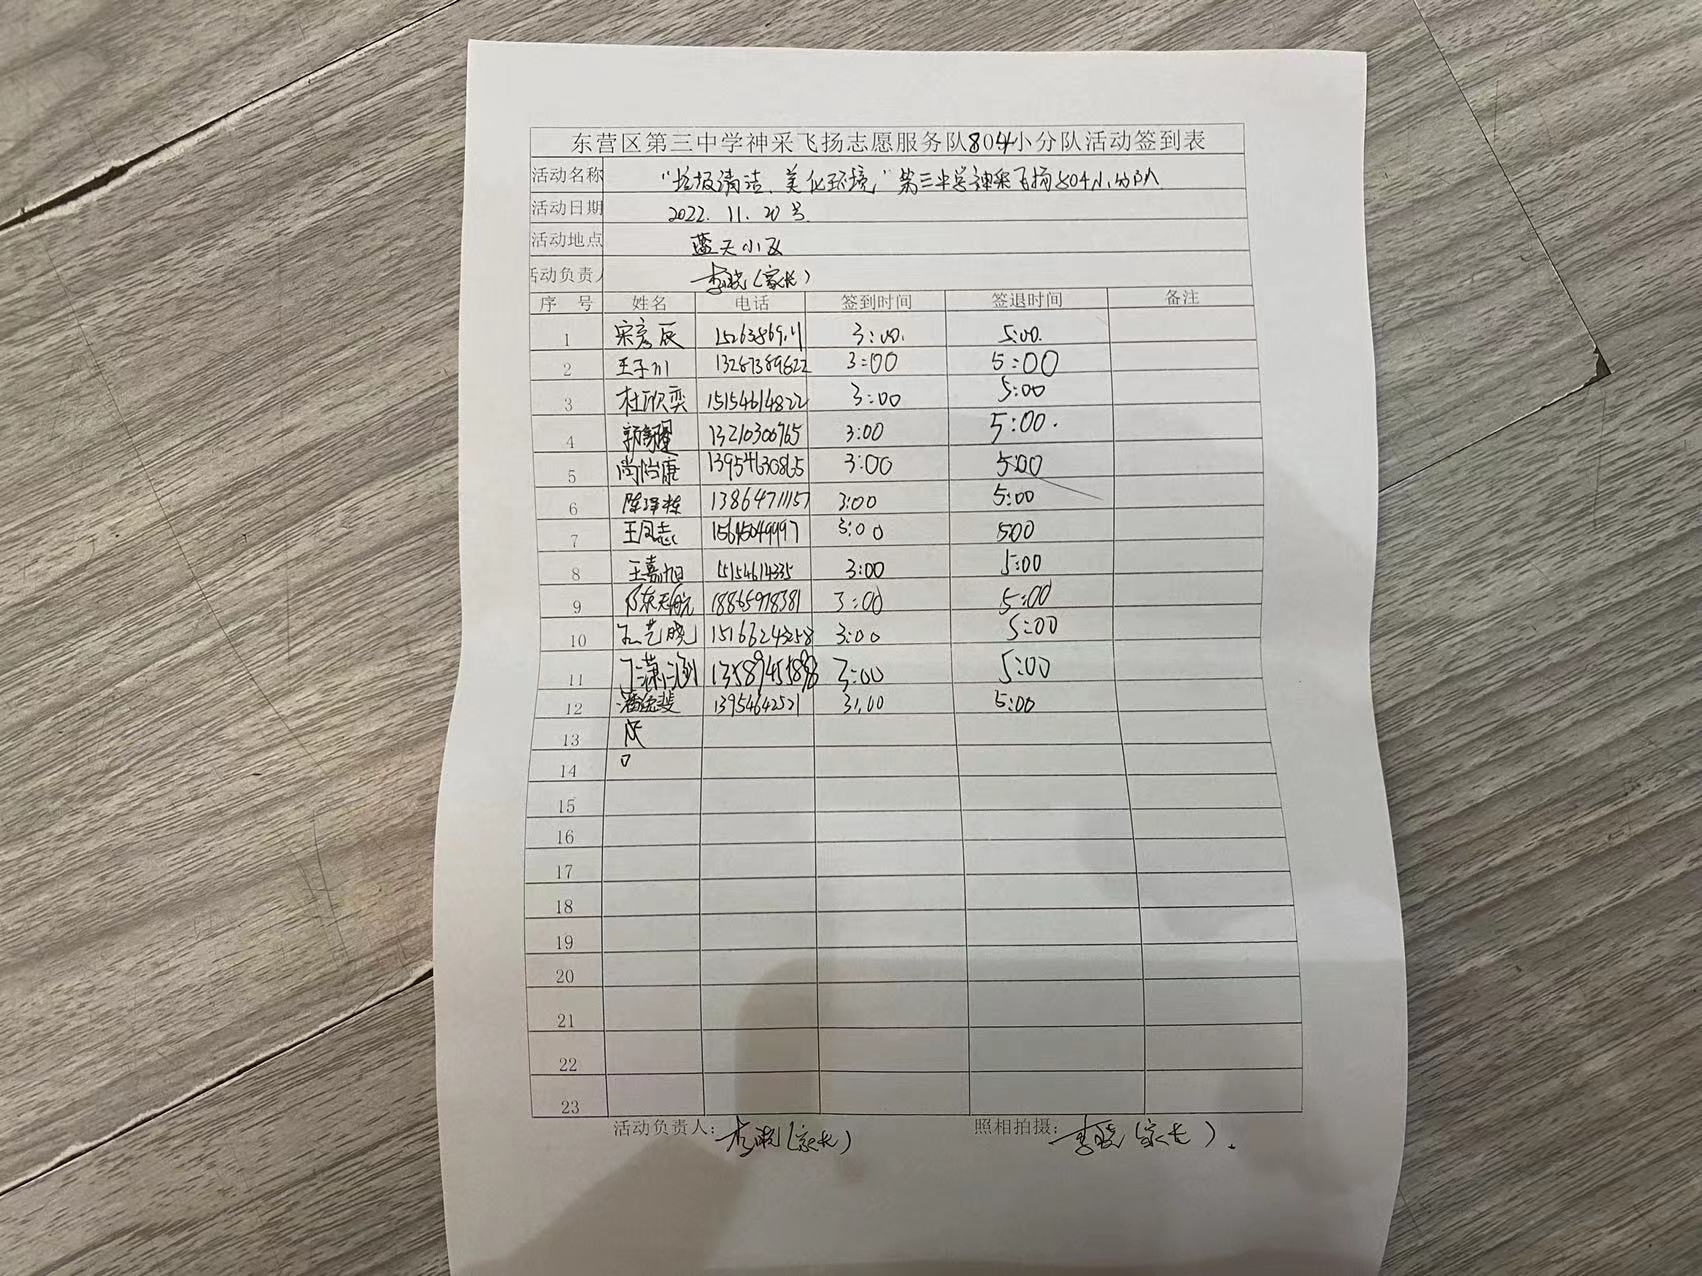 东营区第三中学神采飞扬志愿服务队804小分队活动签到表
活动名称 “垃圾清洁、美化环境”第三中学神采飞扬804小分队
活动日期 2022.11.20号.
活动地点 蓝天小区
活动负责人 李晓(家长)
序 号 姓名 电话 签到时间 签退时间 备注
1 宋彦辰 3:00. 5:00.
2 王子川 13287389822 3:00 5:00
3 杜欣奕 15154614822 3:00 5:00
4 13210300765 3:00 5:00.
5 尚怡康 13954630865 3:00 5:00
6 陈泽栋 13864711157 3:00 5:00
7 王风志 3:00 500
8 王嘉旭 3:00 5:00
9 陈天航 18865978381 3:00 5:00
10 艺晓 3:00 5:00
11 潇涵 3:00 5:00
12 13954642521 3:00 5:00
13
14
15
16
17
18
19
20
21
22
23
活动负责人: 李晓(家长) 照相拍摄: 李晓(家长).